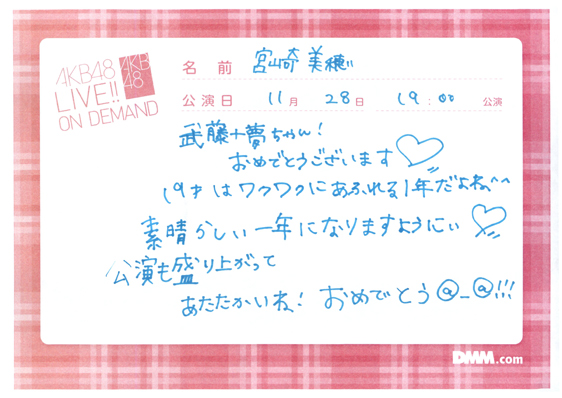 AKB48
LIVE!!
ON DEMAND
AKB
48
名 前 宮崎美穂
公演日 11月 28日 19:00 公演
武藤十夢ちゃん!
おめでとうございます♡
19才はワクワクにあふれる1年だよね^^
素晴らしい一年になりますようにぃ♡
公演も盛り上がって
あたたかいね! おめでとう@_@!!!
DMM.com